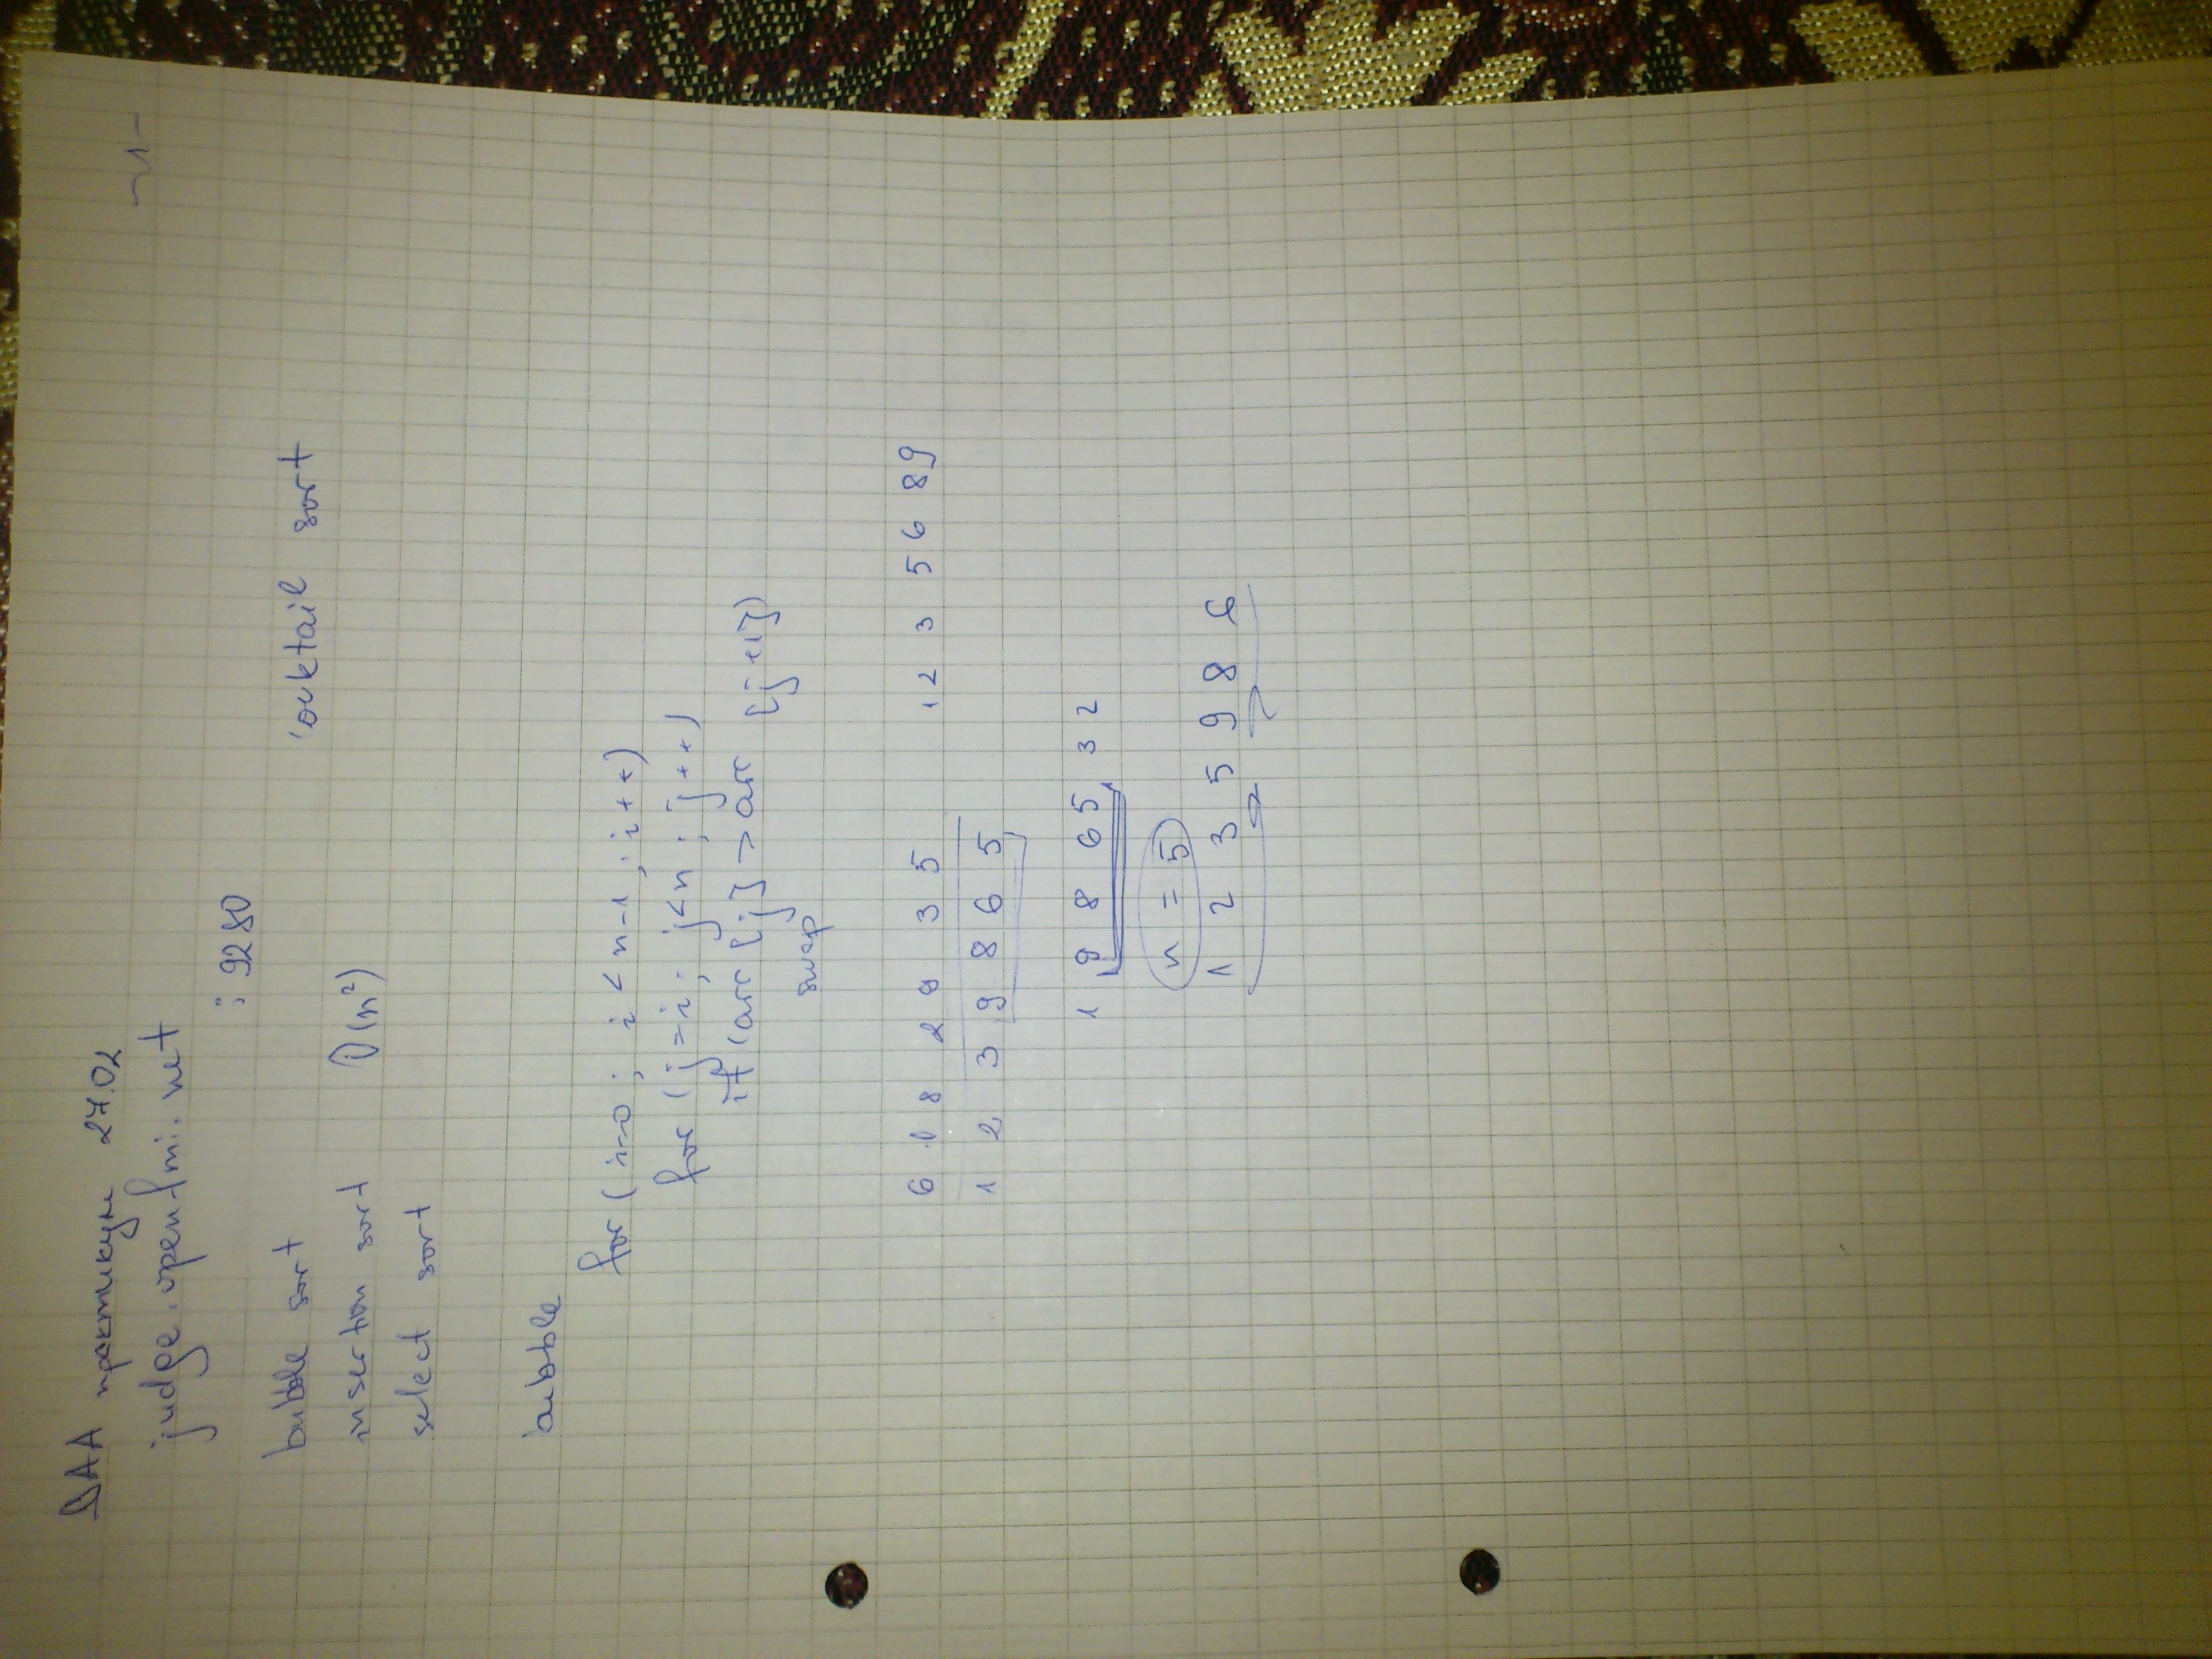 ~1~
ДАА практикум 27.02
judge.openfmi.net
:9280
bubble sort
coctail sort
insertion sort O(n²)
select sort
bubble
for (i=0; i < n-1; i++)
for (j=i; j<n; j++)
if (arr[j] > arr[j+1])
swap
6 1 8 2 9 3 5 1 2 3 5 6 8 9
1 2 3 9 8 6 5
1 9 8 6 5 3 2
n = 5
1 2 3 5 9 8 6